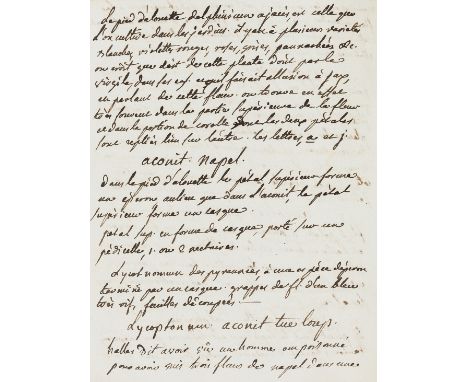 Le pied d'alouette delphinium ajacis est celle que
l'on cultive dans les jardins. il y en a plusieurs varietés
blanches violettes rouges roses, grises, pannachées &c.
on croit que c'est de cette plante dont parle
virgile, dans les et qu'il faisait allusion à ajax,
en parlant de cette fleur. on trouve en effet
très souvent dans la partie supérieure de la fleur
et dans la portion de corolle dont les deux pétales
sont repliés l'un sur l'autre. les lettres, a et j.
aconit napel.
dans le pied d'alouette le pétal supérieur forme
un éperon au lieu que dans l'aconit, le pétal
supérieur forme un casque.
petal sup. en forme de casque, porté sur un
pédicelle, 1. ou 2 nectaires.
des pyrennées à une espèce d'éperon
terminé par un casque. grappes de fl. d'un bleu
très vif, feuilles découpées —
Lycoptonum aconit tue loup.
haller dit avoir vu un homme empoisonné
pour avoir mis trois fleurs de napel dans une